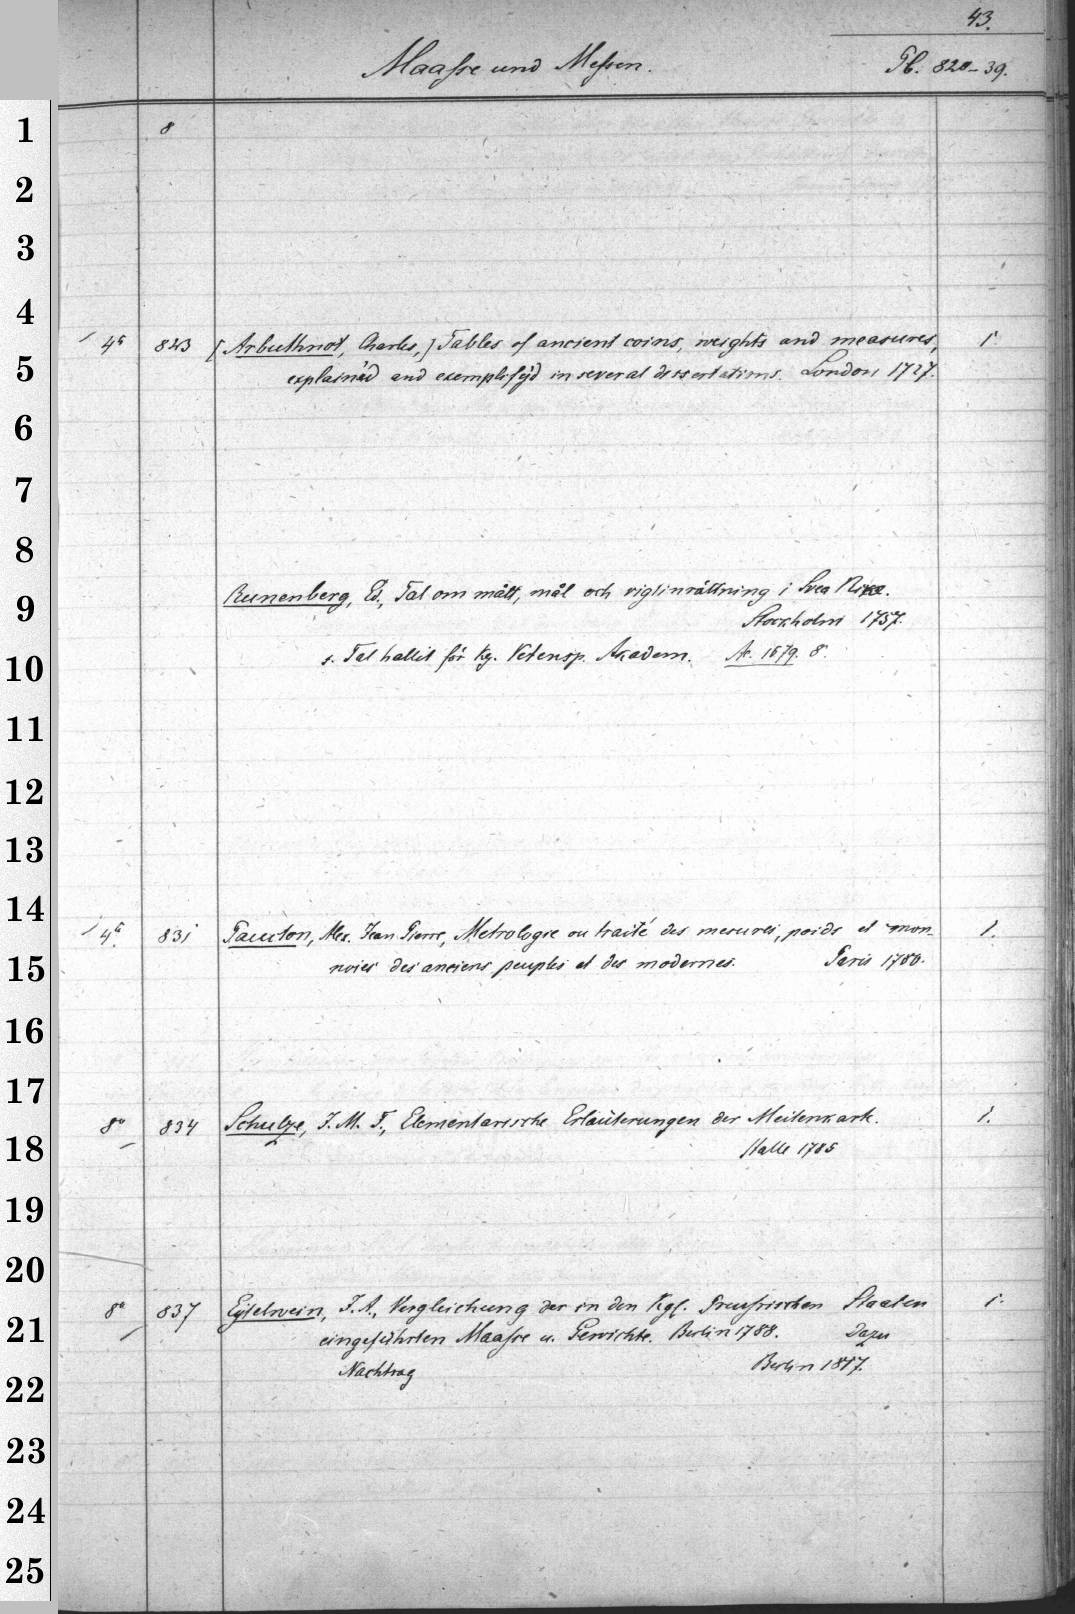 43.
Maasse und Messen.
Pb. 820-39.
8
4° 823 [Arbuthnot, Charles,] Tables of ancient coins, weights and measures, 1
explain'd and exemplify'd in several dissertations. London 1727.
Runenberg, Ed., Tal om mått, mål och vigtinrättning i Svea Rike.
Stockholm 1757.
s. Tal hallit för Kg. Vetensp. Akadem. Ac. 1679. 8°.
4° 831 Paucton, Alex. Jean Pierre, Metrologie ou traité des mesures, poids et mon-
noies des anciens peuples et des modernes. Paris 1780. 1.
8° 834 Schulze, J. M. F., Elementarische Erläuterungen der Meilenkart. 1.
Halle 1785
8° 837 Eytelwein, J. A., Vergleichung der in den Kgl. Preussischen Staaten 1.
eingeführten Maasse u. Gewichte. Berlin 1788. Dazu
Nachtrag Berlin 1817.
1
2
3
4
5
6
7
8
9
10
11
12
13
14
15
16
17
18
19
20
21
22
23
24
25